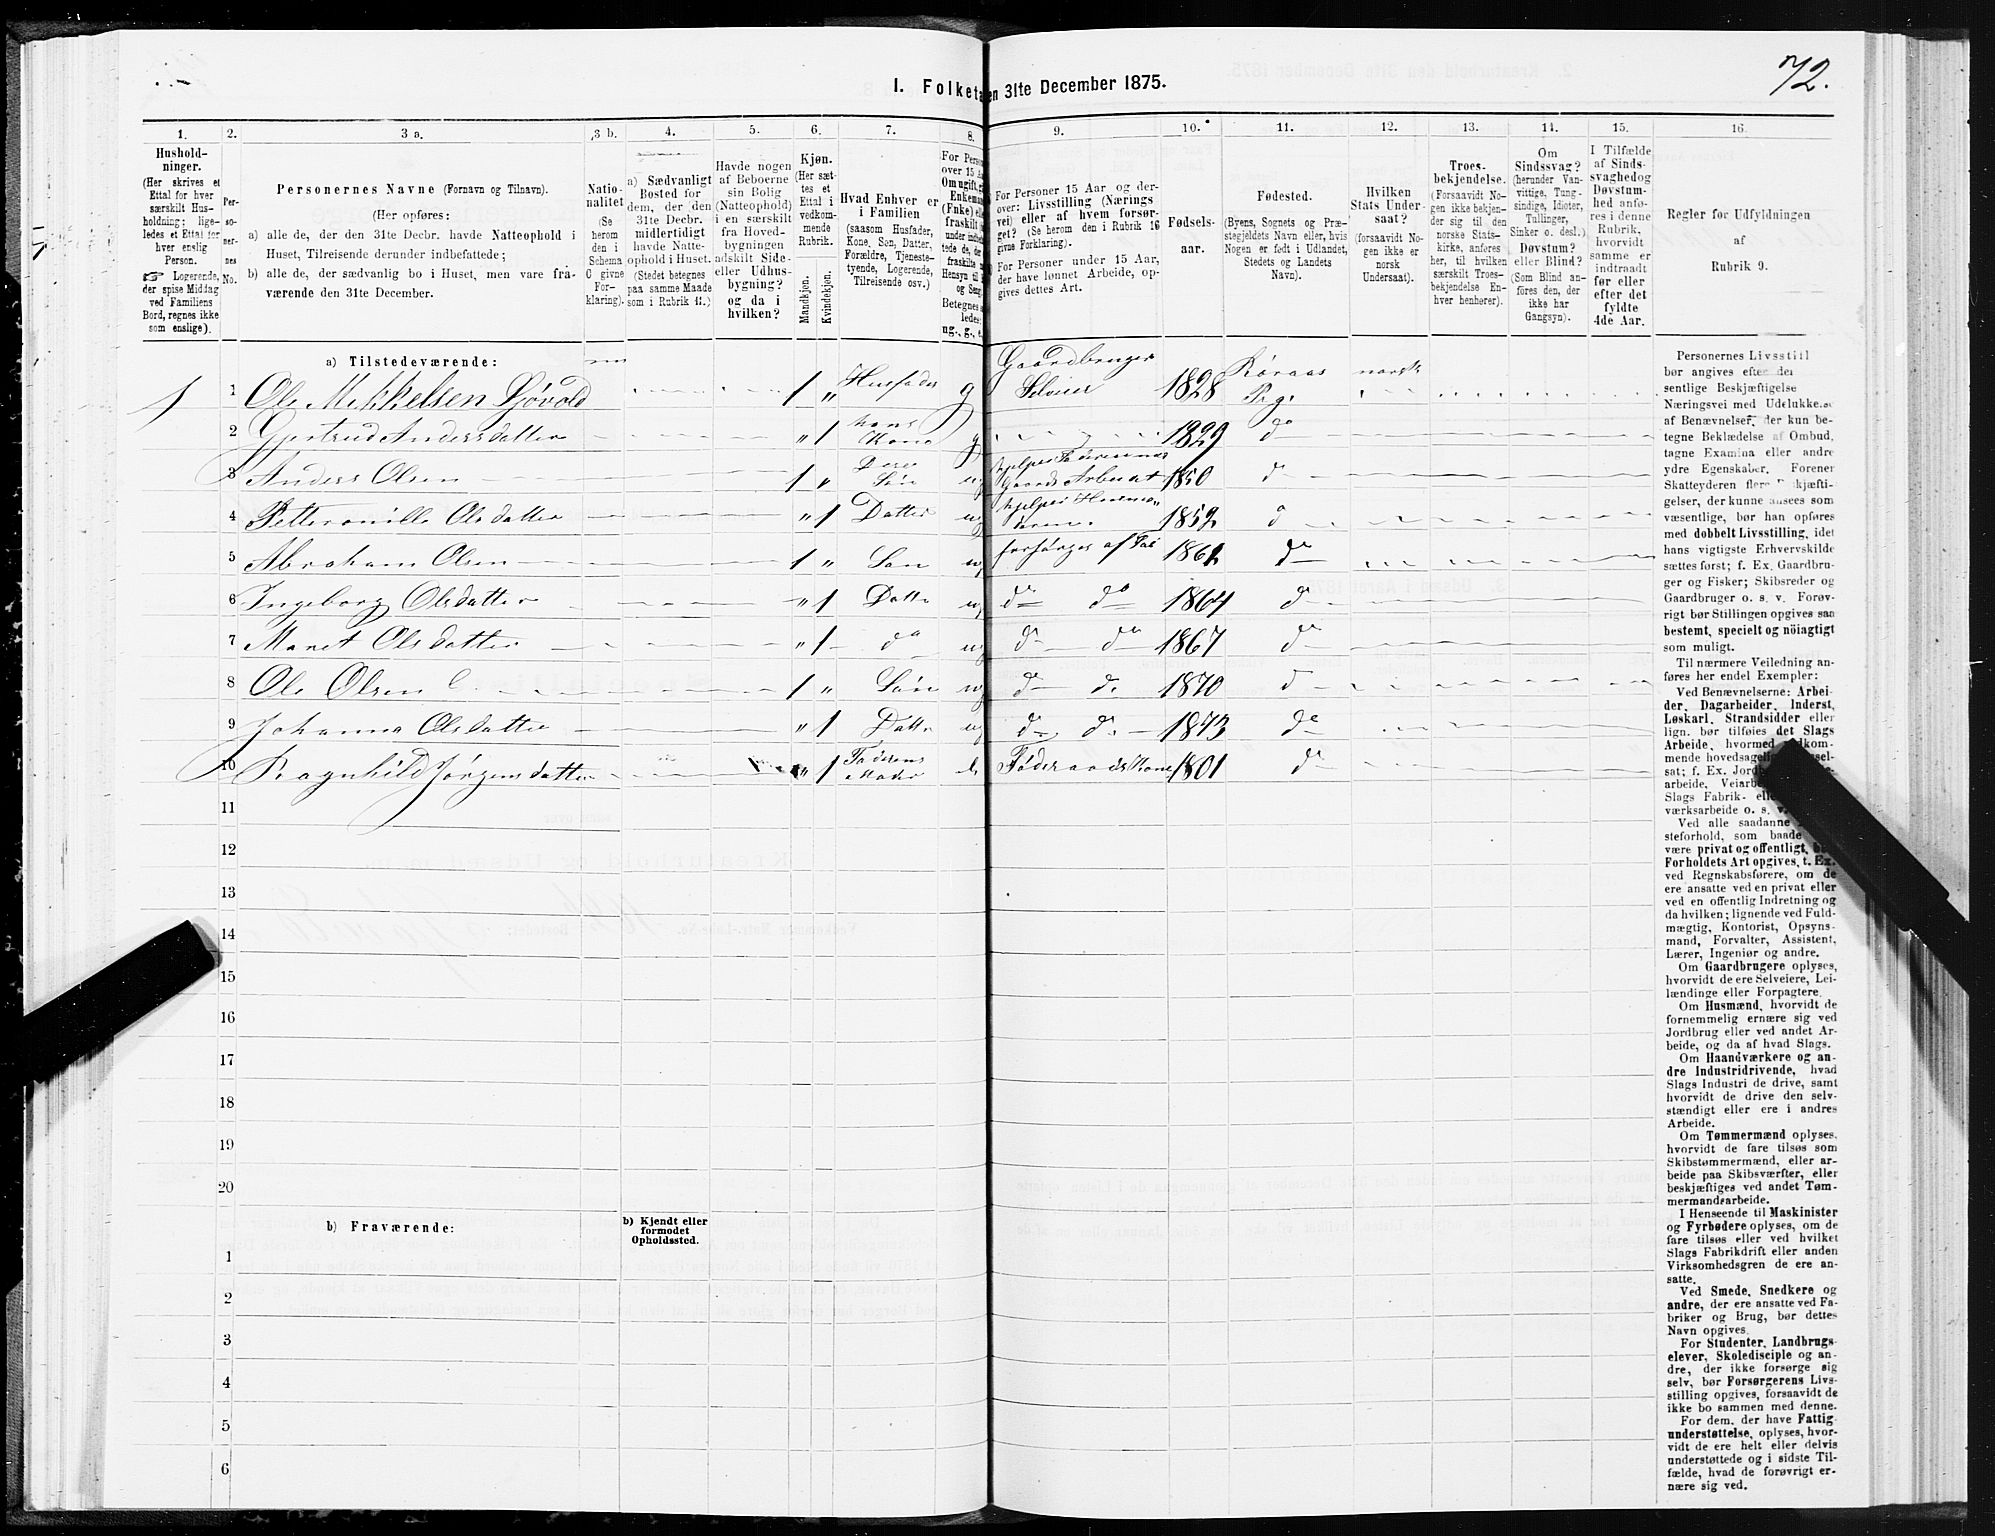 72.
I. Folketa en 31te December 1875.
1. 2. 3 a. 3 b. 4. 5. 6. 7. 8. 9. 10. 11. 12. 13. 14. 15. 16.
Hushold-
ninger.
(Her skrives et
Ettal for hver
særskilt Hus-
holdning; lige-
ledes et Ettal for
hver enslig
Person.
Logerende,
der spise Middag
ved Familiens
Bord, regnes ikke
som enslige).
Per-
so-
ner-
nes
No.
Personernes Navne (Fornavn og Tilnavn).
(Her opføres:
a) alle de, der den 31te Decbr. havde Natteophold i
Huset, Tilreisende derunder indbefattede;
b) alle de, der sædvanlig bo i Huset, men vare fra-
værende den 31te December.
Natio-
nalitet
(Se
herom
den i
Schema
C givne
For-
klaring).
a) Sædvanligt
Bosted for
dem, der den
31te Decbr.
midlertidigt
havde Natte-
ophold i Huset.
(Stedet betegnes
paa samme Maade
som i Rubrik 11.)
Havde nogen
af Beboerne
sin Bolig
(Natteophold)
i en særskilt
fra Hoved-
bygningen
adskilt Side-
eller Udhus-
bygning?
og da i
hvilken?
Kjøn.
(Her sæt-
tes et
Ettal i
vedkom-
mende
Rubrik.
Mandkjøn.
Kvindekjøn.
Hvad Enhver er
i Familien
(saasom Husfader,
Kone, Søn, Datter,
Forældre, Tjeneste-
tyende, Logerende,
Tilreisende osv.)
For Perso
over 15 Aa
Om ugift, g
Enkemæ
(Fnke) ell
fraskilt
under indbe
tede de, der
fraskilte
Hensyn til
og Seng
Betegnes s
ledes:
ug., g., e.
For Personer 15 Aar og der-
over: Livsstilling (Nærings
vei) eller af hvem forsør-
get? (Se herom den i Rubrik 16
givne Forklaring).
For Personer under 15 Aar,
der have lønnet Arbeide, op-
gives dettes Art.
Fødsels-
aar.
Fødested.
(Byens, Sognets og Præ-
stegjeldets Navn eller, hvis
Nogen er født i Udlandet,
Stedets og Landets
Navn).
Hvilken
Stats Under-
saat?
(forsaavidt No-
gen ikke er
norsk
Undersaat).
Troes-
bekjendelse.
(Forsaavidt No-
gen ikke bekjen-
der sig til den
norske Stats-
kirke, anføres
her, til hvilken
særskilt Troes-
bekjendelse En-
hver henhører).
Om
Sindssvag?
(herunder Van-
vittige, Tung-
sindige, Idioter,
Tullinger,
Sinker o. desl.)
Døvstum?
eller Blind?
(Som Blind an-
føres den, der
ikke har
Gangsyn).
I Tilfælde
af Sinds-
svaghed og
Døvstum-
hed anfø-
res i denne
Rubrik,
hvorvidt
samme er
indtraadt
før eller
efter det
fyldte
4de Aar.
Regler for Udfyldningen
af
Rubrik 9.
a) Tilstedeværende:
1 1 Ole Mikkelsen Gjøvold 1 " Husfader g Gaardbruger Selveier 1828 Røraas Pr.g. norsk
2 Gjertrud Andersdatter " 1 hans Kone g 1829 do
3 Anders Olsen 1 " Deres Søn ug 1850 do
4 Petternille Olsdatter " 1 Datter ug 1852 do
5 Abraham Olsen 1 " Søn ug forsørges af Fad 1861 do
6 Ingeborg Olsdatter " 1 Datte ug do do 1864 do
7 Maret Olsdatter " 1 do ug do do 1867 do
8 Ole Olsen 1 " Søn ug do do 1870 do
9 Johanna Olsdatter " 1 Datte ug do do 1873 do
10 Ragnhild Jørgensdatter " 1 Faderens Moder e Føderaadskone 1801 do
11
12
13
14
15
16
17
18
19
20
b) Fraværende:
b) Kjendt eller
formodet
Opholdssted.
1
2
3
4
5
6
Personernes Livsstill
bør angives efter den
sentlige Beskjæftigelse
Næringsvei med Udelukkelse
af Benævnelser, der kun be-
tegne Beklædelse af Ombud,
tagne Examina eller andre
ydre Egenskaber. Forener
Skatteyderen flere Beskjæfti-
gelser, der kunne ansees som
væsentlige, bør han opføres
med dobbelt Livsstilling, idet
hans vigtigste Erhvervskilde
sættes først; f. Ex. Gaardbru-
ger og Fisker; Skibsreder og
Gaardbruger o. s. v. Forøv-
rigt bør Stillingen opgives saa
bestemt, specielt og nöiagtigt
som muligt.
Til nærmere Veiledning an-
føres her endel Exempler:
Ved Benævnelserne: Arbei-
der, Dagarbeider, Inderst,
Løskarl, Strandsidder eller
lign. bør tilføies det Slags
Arbeide, hvormed edkom-
mende hovedsagelig ssel-
sat; f. Ex. Jord e-
arbeide, Veiarb
Slags Fabrik- ell
værksarbeide o. s. v.
Ved alle saadanne
steforhold, som baade
være privat og offentligt, bø
Forholdets Art opgives, t. Ex.
ved Regnskabsførere, om de
ere ansatte ved en privat eller
ved en offentlig Indretning og
da hvilken; lignende ved Fuld-
mægtig, Kontorist, Opsyns-
mand, Forvalter, Assistent,
Lærer, Ingeniør og andre.
Om Gaardbrugere oplyses,
hvorvidt de ere Selveiere, Lei-
lændinge eller Forpagtere.
Om Husmænd, hvorvidt de
fornemmelig ernære sig ved
Jordbrug eller ved andet Ar-
beide, og da af hvad Slags.
Om Haandværkere og an-
dre Industridrivende, hvad
Slags Industri de drive, samt
hvorvidt de drive den selv-
stændigt eller ere i andres
Arbeide.
Om Tømmermænd oplyses,
hvorvidt de fare tilsøs som
Skibstømmermænd, eller ar-
beide paa Skibsværfter, eller
beskjæftiges ved andet Tøm-
mermandsarbeide.
I Henseende til Maskinister
og Fyrbødere oplyses, om de
fare tilsøs eller ved hvilket
Slags Fabrikdrift eller anden
Virksomhedsgren de ere an-
satte.
Ved Smede, Snedkere og
andre, der ere ansatte ved Fa-
briker og Brug, bør dettes
Navn opgives.
For Studenter, Landbrugs-
elever, Skoledisciple og an-
dre, der ikke forsørge sig
selv, bør Forsørgerens Livs-
stilling opgives, forsaavidt de
ikke bo sammen med denne.
For dem, der have Fattig-
understøttelse, oplyses, hvor-
vidt de ere helt eller delvis
understøttede og i sidste Til-
fælde, hvad de forøvrigt er-
nære sig ved.